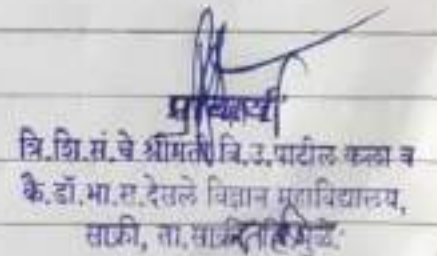 प्राचार्य
वि.शि.सं.चे श्रीमती वि.उ.पाटील कला व
कै.डॉ.भा.रा.देसले विज्ञान महाविद्यालय,
साक्री, ता.साक्री जि.धुळे.